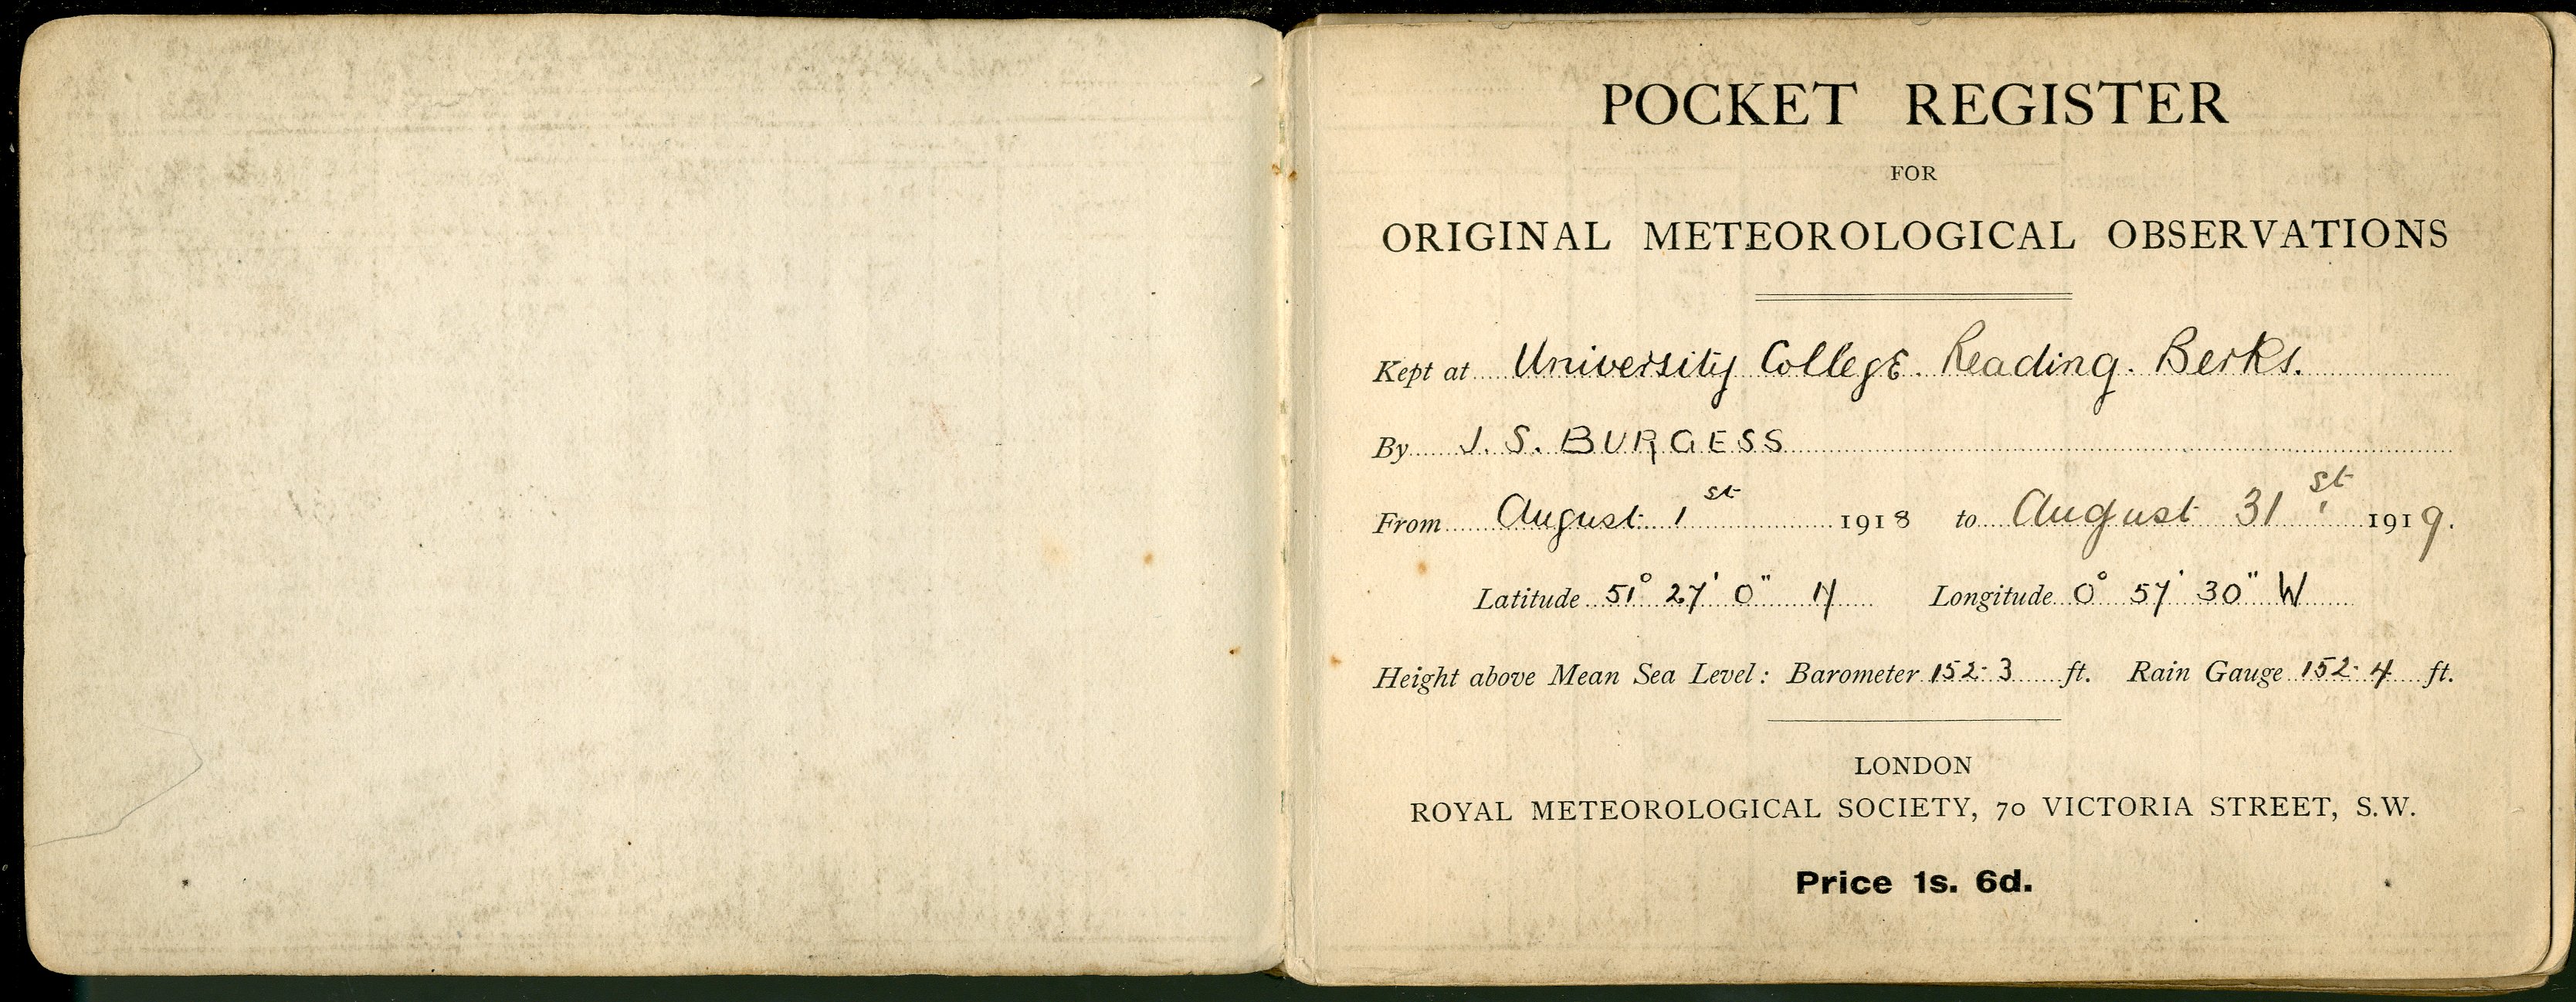 POCKET REGISTER
FOR
ORIGINAL METEOROLOGICAL OBSERVATIONS
Kept at University College. Reading. Berks.
By J. S. BURGESS
From August 1st 1918 to August 31st 1919.
Latitude 51° 27' 0" N Longitude 0° 57' 30" W
Height above Mean Sea Level: Barometer 152.3 ft. Rain Gauge 152.4 ft.
LONDON
ROYAL METEOROLOGICAL SOCIETY, 70 VICTORIA STREET, S.W.
Price 1s. 6d.